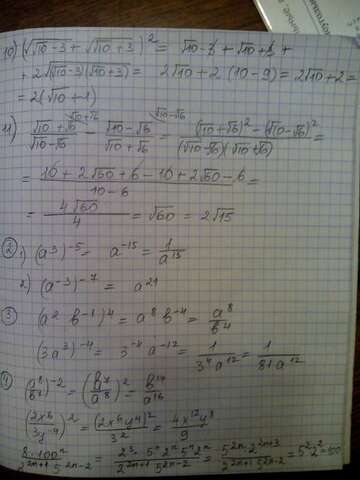 10) (√(√10-3) + √(√10+3))² = √10-3 + √10+3 +
+ 2√((√10-3)(√10+3)) = 2√10 + 2 (10-9) = 2√10+2 =
= 2(√10 + 1)
√10+√6 √10-√6
11) (√10 + √6)/(√10-√6) - (√10-√6)/(√10+√6) = ((√10+√6)² - (√10-√6)²)/((√10-√6)(√10+√6)) =
= (10 + 2√60 + 6 - 10 + 2√60 - 6)/(10-6) =
= 4√60/4 = √60 = 2√15
② 1) (a³)⁻⁵ = a⁻¹⁵ = 1/a¹⁵
2) (a⁻³)⁻⁷ = a²¹
③ (a² b⁻¹)⁴ = a⁸ b⁻⁴ = a⁸/b⁴
(3a³)⁻⁴ = 3⁻⁴ a⁻¹² = 1/(3⁴a¹²) = 1/(81a¹²)
④ (a⁸/b⁷)⁻² = (b⁷/a⁸)² = b¹⁴/a¹⁶
(2x⁶/3y⁻⁴)² = (2x⁶y⁴)²/3² = 4x¹²y⁸/9
8·100ⁿ/(2²ⁿ⁺¹ 5²ⁿ⁻²) = 2³·5ⁿ 2ⁿ 5ⁿ 2ⁿ/(2²ⁿ⁺¹ 5²ⁿ⁻²) = 5²ⁿ·2²ⁿ⁺³/(2²ⁿ⁺¹ 5²ⁿ⁻²) = 5² 2² = 100